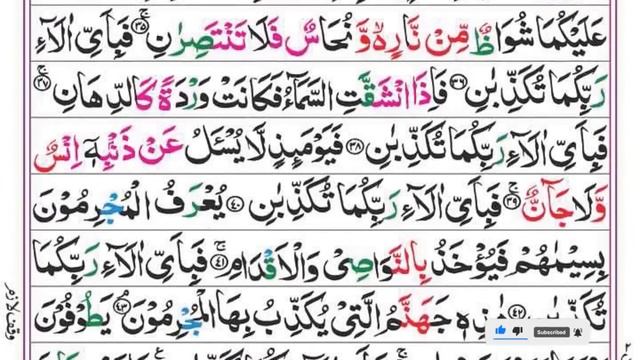 عَلَيْكُمَا شُوَاظٌ مِّنْ نَّارٍ ۙ وَّ نُحَاسٌ فَلَا تَنْتَصِرٰنِ ۚ ٣٥ فَبِاَىِّ اٰلَآءِ
رَبِّكُمَا تُكَذِّبٰنِ ٣٦ فَاِذَا انْشَقَّتِ السَّمَآءُ فَكَانَتْ وَرْدَةً كَالدِّهَانِ ۚ ٣٧
فَبِاَىِّ اٰلَآءِ رَبِّكُمَا تُكَذِّبٰنِ ٣٨ فَيَوْمَئِذٍ لَّا يُسْـَٔلُ عَنْ ذَنْۢبِهٖٓ اِنْسٌ
وَّلَا جَآنٌّ ۚ ٣٩ فَبِاَىِّ اٰلَآءِ رَبِّكُمَا تُكَذِّبٰنِ ٤٠ يُعْرَفُ الْمُجْرِمُوْنَ
بِسِيْمٰهُمْ فَيُؤْخَذُ بِالنَّوَاصِىْ وَالْاَقْدَامِ ۚ ٤١ فَبِاَىِّ اٰلَآءِ رَبِّكُمَا
تُكَذِّبٰنِ ٤٢ هٰذِهٖ جَهَنَّمُ الَّتِىْ يُكَذِّبُ بِهَا الْمُجْرِمُوْنَ ۘ ٤٣ يَطُوْفُوْنَ
وقف لازم
Subscribed